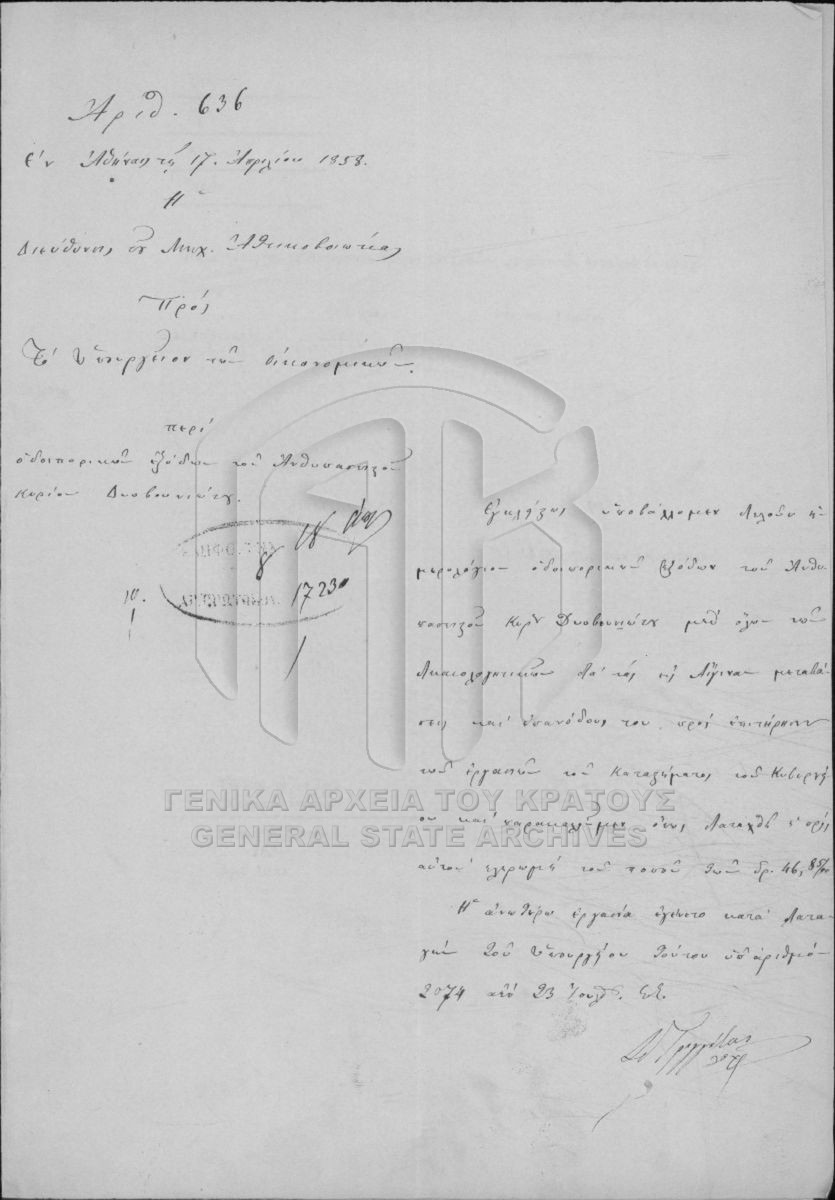 Ἀριθ. 636
Ἐν Ἀθήναις τῇ 17 Ἀπριλίου 1858.
Ἡ
Διεύθυνσις τοῦ Μηχ. Ἀττικοβοιωτίας
Πρός
Τὸ Ὑπουργεῖον τῶν Οἰκονομικῶν.
περὶ
ὁδοιπορικῶν ἐξόδων τοῦ Ἀνθυπασπιστοῦ
Κυρίου Δυοβουνιώτου.
1723
10.
Ἐγκλείστως ὑποβάλλομεν ἡ-
μερολόγιον ὁδοιπορικῶν ἐξόδων τοῦ Ἀνθυ-
πασπιστοῦ Κυρίου Δυοβουνιώτου μεθ' ὅλων τῶν
δικαιολογητικῶν διὰ τὰς εἰς Αἴγιναν μεταβά-
σεις καὶ ἐπανόδους του πρὸς ἐπιτήρησιν
τῶν ἐργασιῶν τοῦ Καταστήματος τοῦ Κυβερνεί-
ου καὶ παρακαλοῦμεν ὅπως διαταχθῇ ἡ πρὸς
αὐτὸν πληρωμὴ τοῦ ποσοῦ τῶν δρ. 46,85/00
Ἡ ἀνωτέρω ἐργασία ἐγένετο κατὰ διατα-
γὴν τοῦ Ὑπουργείου τούτου ὑπ' ἀριθμὸν
2074 ἀπὸ 23 Ἰουλ.
ΓΕΝΙΚΑ ΑΡΧΕΙΑ ΤΟΥ ΚΡΑΤΟΥΣ
GENERAL STATE ARCHIVES